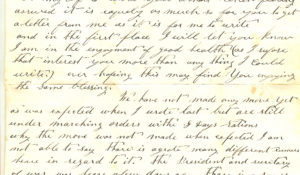 arrived it is equally as much so for you to get
a letter from me as it is for me to write
and in the first place I will let you know
I am in the enjoyment of good health (as I supose
that interest you more than any thing I could
write) ever hoping this may find you enjoying
the same blessing.
We have not made any move yet
as was expected when I wrote last but are still
under marching orders with 3 days rations
why the move was not made when expected I am
not able to say there is a great many different rumors
heare in regard to it. The President and secretary
of war was heare